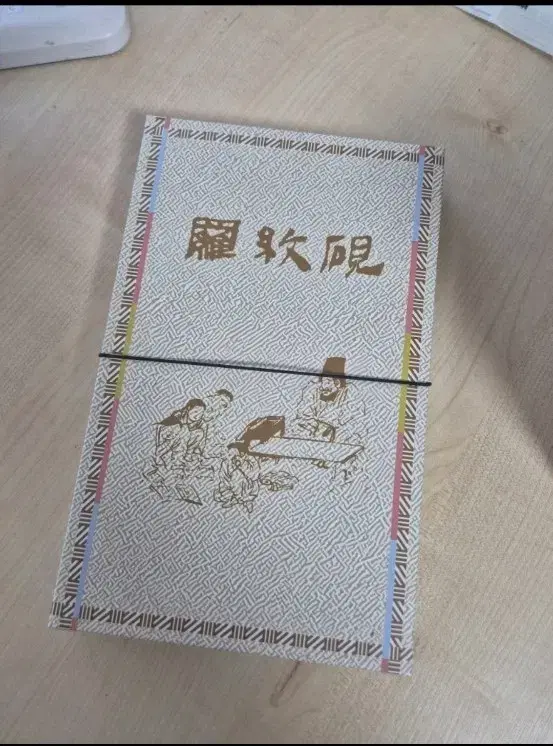 羅紋硯